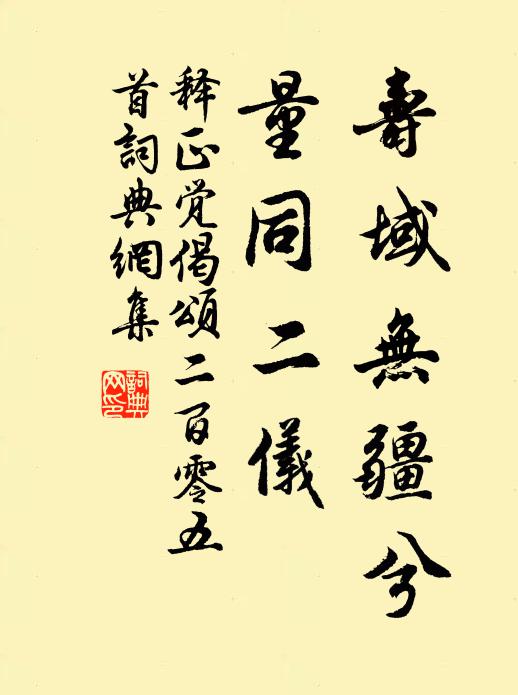 壽域無疆兮
量同二儀
释正觉偈頌二百零五
首詞典網集
詞典网印